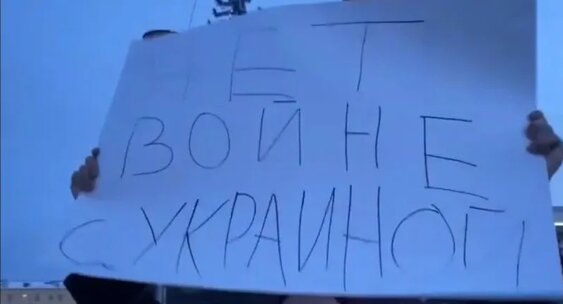 НЕТ
ВОЙНЕ
С УКРАИНОЙ!